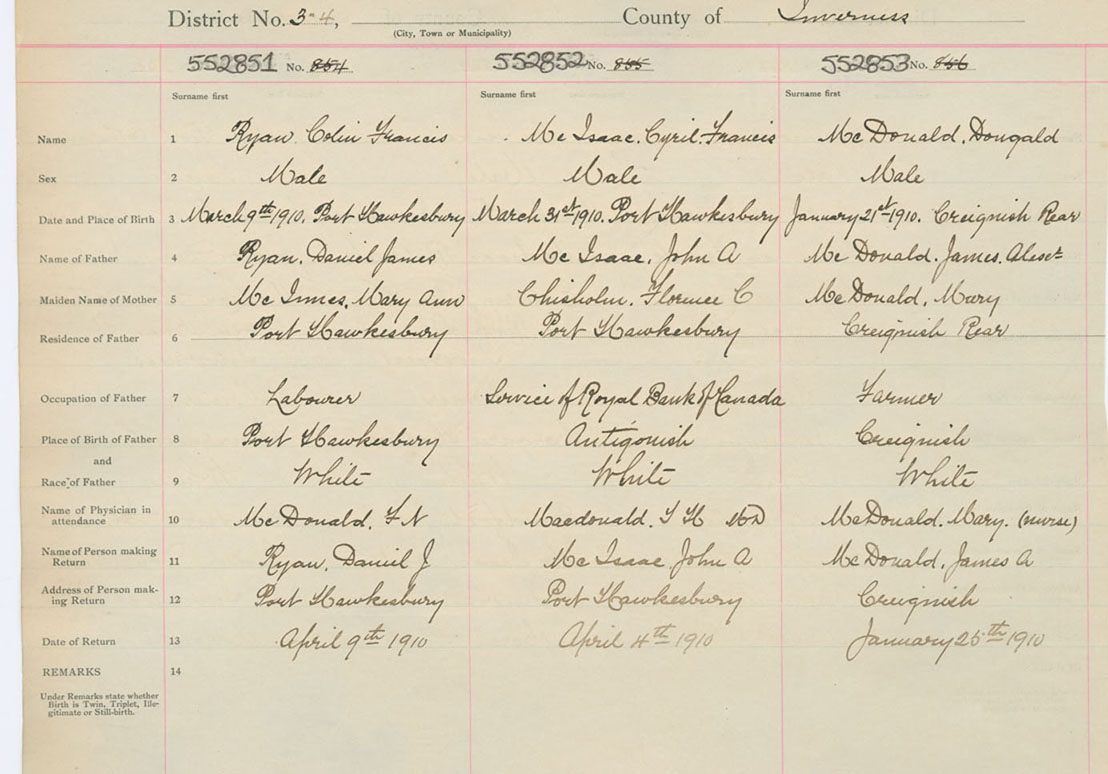 District No. 3-4, County of Inverness
(City, Town or Municipality)
552851 No. 854 552852 No. 855 552853 No. 856
Surname first Surname first Surname first
Name 1 Ryan. Colin Francis Mc Isaac. Cyril. Francis Mc Donald. Dougald
Sex 2 Male Male Male
Date and Place of Birth 3 March 9th 1910. Port Hawkesbury March 31st 1910. Port Hawkesbury January 21st 1910. Creignish Rear
Name of Father 4 Ryan. Daniel James Mc Isaac. John A Mc Donald. James. Alexr
Maiden Name of Mother 5 Mc Innes. Mary Ann Chisholm. Florence C Mc Donald. Mary
Residence of Father 6 Port Hawkesbury Port Hawkesbury Creignish Rear
Occupation of Father 7 Labourer Service of Royal Bank of Canada Farmer
Place of Birth of Father 8 Port Hawkesbury Antigonish Creignish
and
Race of Father 9 White White White
Name of Physician in
attendance 10 Mc Donald. F N Macdonald. MD McDonald. Mary. (nurse)
Name of Person making
Return 11 Ryan. Daniel J Mc Isaac John A Mc Donald. James A
Address of Person mak-
ing Return 12 Port Hawkesbury Port Hawkesbury Creignish
Date of Return 13 April 9th 1910 April 4th 1910 January 25th 1910
REMARKS 14
Under Remarks state whether
Birth is Twin, Triplet, Ille-
gitimate or Still-birth.